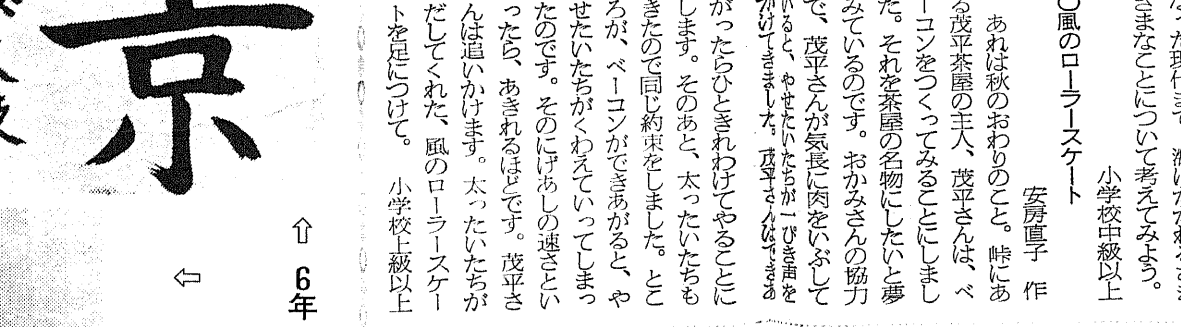 った現代まで
さまなことについて考えてみよう。
小学校中級以上
〇風のローラースケート
安房直子 作
あれは秋のおわりのこと。峠にあ
る茂平茶屋の主人、茂平さんは、ベ
ーコンをつくってみることにしまし
た。それを茶屋の名物にしたいと夢
みているのです。おかみさんの協力
で、茂平さんが気長に肉をいぶして
いると、やせたいたちが一ぴき声を
かけてきました。茂平さんはできあ
がったらひときれわけてやることに
します。そのあと、太ったいたちも
きたので同じ約束をしました。とこ
ろが、ベーコンができあがると、や
せたいたちがくわえていってしまっ
たのです。そのにげあしの速さとい
ったら、あきれるほどです。茂平さ
んは追いかけます。太ったいたちが
だしてくれた、風のローラースケー
トを足につけて。 小学校上級以上
⇧ 6年
⇦
京